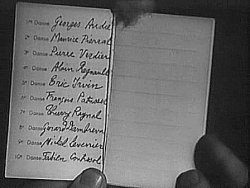 1re Danse Georges Audié
2e Danse Maurice Pierral
3e Danse Pierre Verdier
4e Danse Alain Regnault
5e Danse Eric Irvin
6e Danse François
7e Danse Thierry Raynal
8e Danse Gérard Dambreval
9e Danse Michel Levenier
10e Danse Fabien